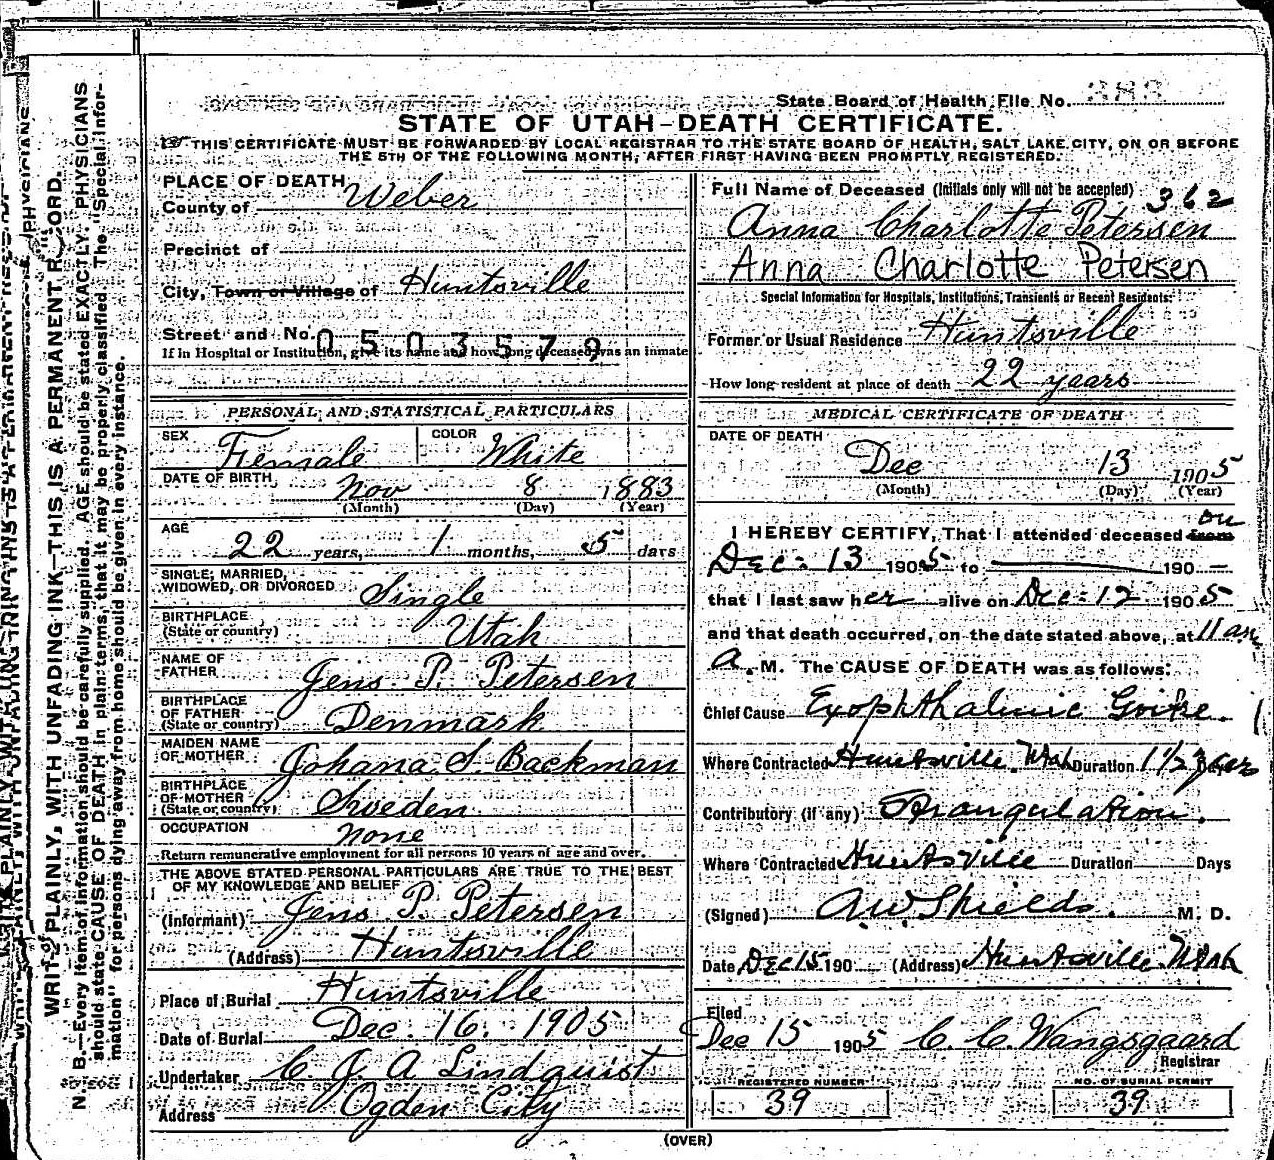 State Board of Health File No.
STATE OF UTAH-DEATH CERTIFICATE.
THIS CERTIFICATE MUST BE FORWARDED BY LOCAL REGISTRAR TO THE STATE BOARD OF HEALTH, SALT LAKE CITY, ON OR BEFORE
THE 5TH OF THE FOLLOWING MONTH, AFTER FIRST HAVING BEEN PROMPTLY REGISTERED.
PLACE OF DEATH
County of Weber
Precinct of
City, Town or Village of Huntsville
Street and No. 0503579
If in Hospital or Institution, give its name and how long deceased was an inmate
PERSONAL AND STATISTICAL PARTICULARS
SEX Female COLOR White
DATE OF BIRTH Nov 8 1883
(Month) (Day) (Year)
AGE 22 years, 1 months, 5 days
SINGLE, MARRIED,
WIDOWED, OR DIVORCED Single
BIRTHPLACE
(State or country) Utah
NAME OF
FATHER Jens P. Petersen
BIRTHPLACE
OF FATHER
(State or country) Denmark
MAIDEN NAME
OF MOTHER Johana S. Backman
BIRTHPLACE
OF MOTHER
(State or country) Sweden
OCCUPATION None
Return remunerative employment for all persons 10 years of age and over.
THE ABOVE STATED PERSONAL PARTICULARS ARE TRUE TO THE BEST
OF MY KNOWLEDGE AND BELIEF
(Informant) Jens P. Petersen
(Address) Huntsville
Place of Burial Huntsville
Date of Burial Dec. 16. 1905
Undertaker C. J. A. Lindquist
Address Ogden City
Full Name of Deceased (Initials only will not be accepted) 362
Anna Charlotte Petersen
Anna Charlotte Petersen
Special Information for Hospitals, Institutions, Transients or Recent Residents:
Former or Usual Residence Huntsville
How long resident at place of death 22 years
MEDICAL CERTIFICATE OF DEATH
DATE OF DEATH
Dec 13 1905
(Month) (Day) (Year)
I HEREBY CERTIFY, That I attended deceased from on
Dec. 13 1905 to 190
that I last saw her alive on Dec. 12 1905
and that death occurred, on the date stated above, at 11 am
a. M. The CAUSE OF DEATH was as follows:
Chief Cause Exophthalmic Goitre.
Where Contracted Huntsville Utah Duration 1 1/2 years
Contributory (if any) Strangulation.
Where Contracted Huntsville Duration Days
(Signed) A.W. Shields. M. D.
Date Dec 15 190 (Address) Huntsville Utah
Filed
Dec 15 1905 C. C. Wangsgaard
Registrar
REGISTERED NUMBER NO. OF BURIAL PERMIT
39 39
(OVER)
WRITE PLAINLY, WITH UNFADING INK—THIS IS A PERMANENT RECORD.
N. B.—Every item of information should be carefully supplied. AGE should be stated EXACTLY. PHYSICIANS
should state CAUSE OF DEATH in plain terms, that it may be properly classified. The "Special Infor-
mation" for persons dying away from home should be given in every instance.